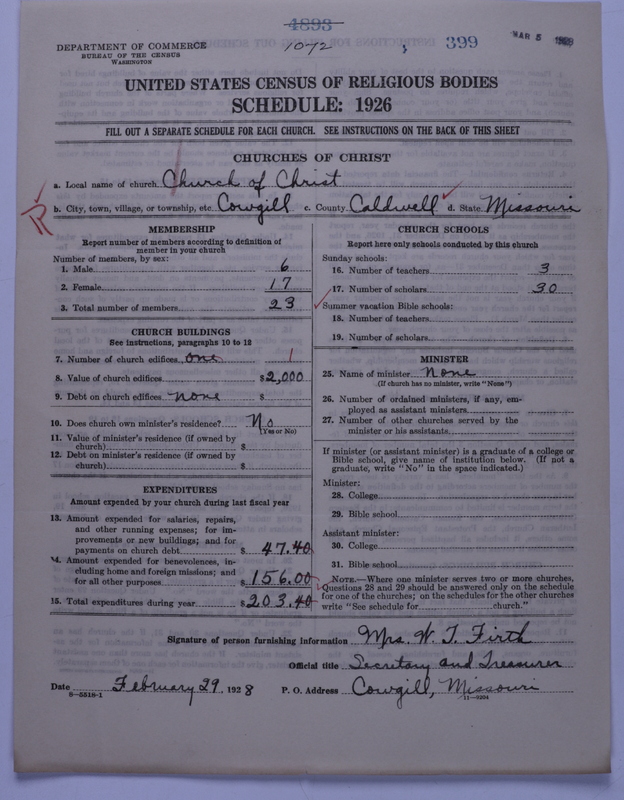 4893
DEPARTMENT OF COMMERCE
BUREAU OF THE CENSUS
WASHINGTON
1072
399
MAR 5 1928
UNITED STATES CENSUS OF RELIGIOUS BODIES
SCHEDULE: 1926
FILL OUT A SEPARATE SCHEDULE FOR EACH CHURCH. SEE INSTRUCTIONS ON THE BACK OF THIS SHEET
CHURCHES OF CHRIST
a. Local name of church Church of Christ
b. City, town, village, or township, etc. Cowgill c. County Caldwell d. State Missouri
MEMBERSHIP
Report number of members according to definition of
member in your church
Number of members, by sex:
1. Male 6
2. Female 17
3. Total number of members 23
CHURCH BUILDINGS
See instructions, paragraphs 10 to 12
7. Number of church edifices one 1
8. Value of church edifices $2,000
9. Debt on church edifices none $
10. Does church own minister's residence? No
(Yes or No)
11. Value of minister's residence (if owned by
church) $
12. Debt on minister's residence (if owned by
church) $
EXPENDITURES
Amount expended by your church during last fiscal year
13. Amount expended for salaries, repairs,
and other running expenses; for im-
provements or new buildings; and for
payments on church debt $ 47.40
14. Amount expended for benevolences, in-
cluding home and foreign missions; and
for all other purposes $ 156.00
15. Total expenditures during year $ 203.40
CHURCH SCHOOLS
Report here only schools conducted by this church
Sunday schools:
16. Number of teachers 3
17. Number of scholars 30
Summer vacation Bible schools:
18. Number of teachers
19. Number of scholars
MINISTER
25. Name of minister None
(If church has no minister, write "None")
26. Number of ordained ministers, if any, em-
ployed as assistant ministers
27. Number of other churches served by the
minister or his assistants
If minister (or assistant minister) is a graduate of a college or
Bible school, give name of institution below. (If not a
graduate, write "No" in the space indicated.)
Minister:
28. College
29. Bible school
Assistant minister:
30. College
31. Bible school
NOTE.—Where one minister serves two or more churches,
Questions 28 and 29 should be answered only on the schedule
for one of the churches; on the schedules for the other churches
write "See schedule for church."
Signature of person furnishing information Mrs. W. T. Firth
Official title Secretary and Treasurer
Date February 29, 1928 P. O. Address Cowgill, Missouri
8—5518-1
11—9204